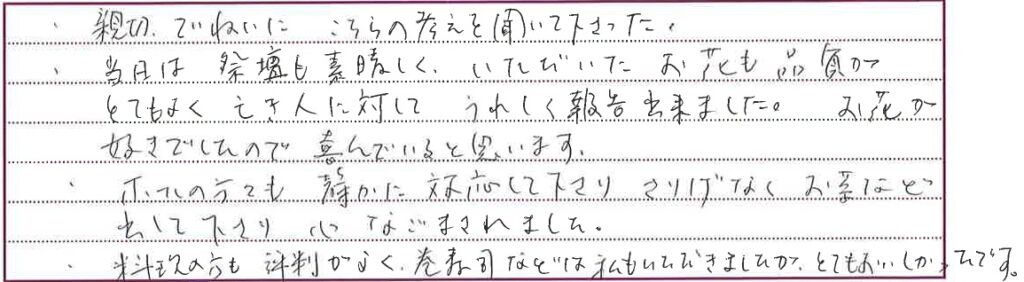 ・親切、ていねいに こちらの考えを聞いて下さった。
・当日は 祭壇も素晴しく、いただいた お花も 品質が
とてもよく 亡き人に対して うれしく報告出来ました。 お花が
好きでしたので 喜んでいると思います。
・ホールの方々も 静かに 対応して下さり さりげなく お茶など
出して下さり 心 なごまされました。
・料理の方も 評判がよく、巻寿司などは私もいただきましたが、とてもおいしかったです。